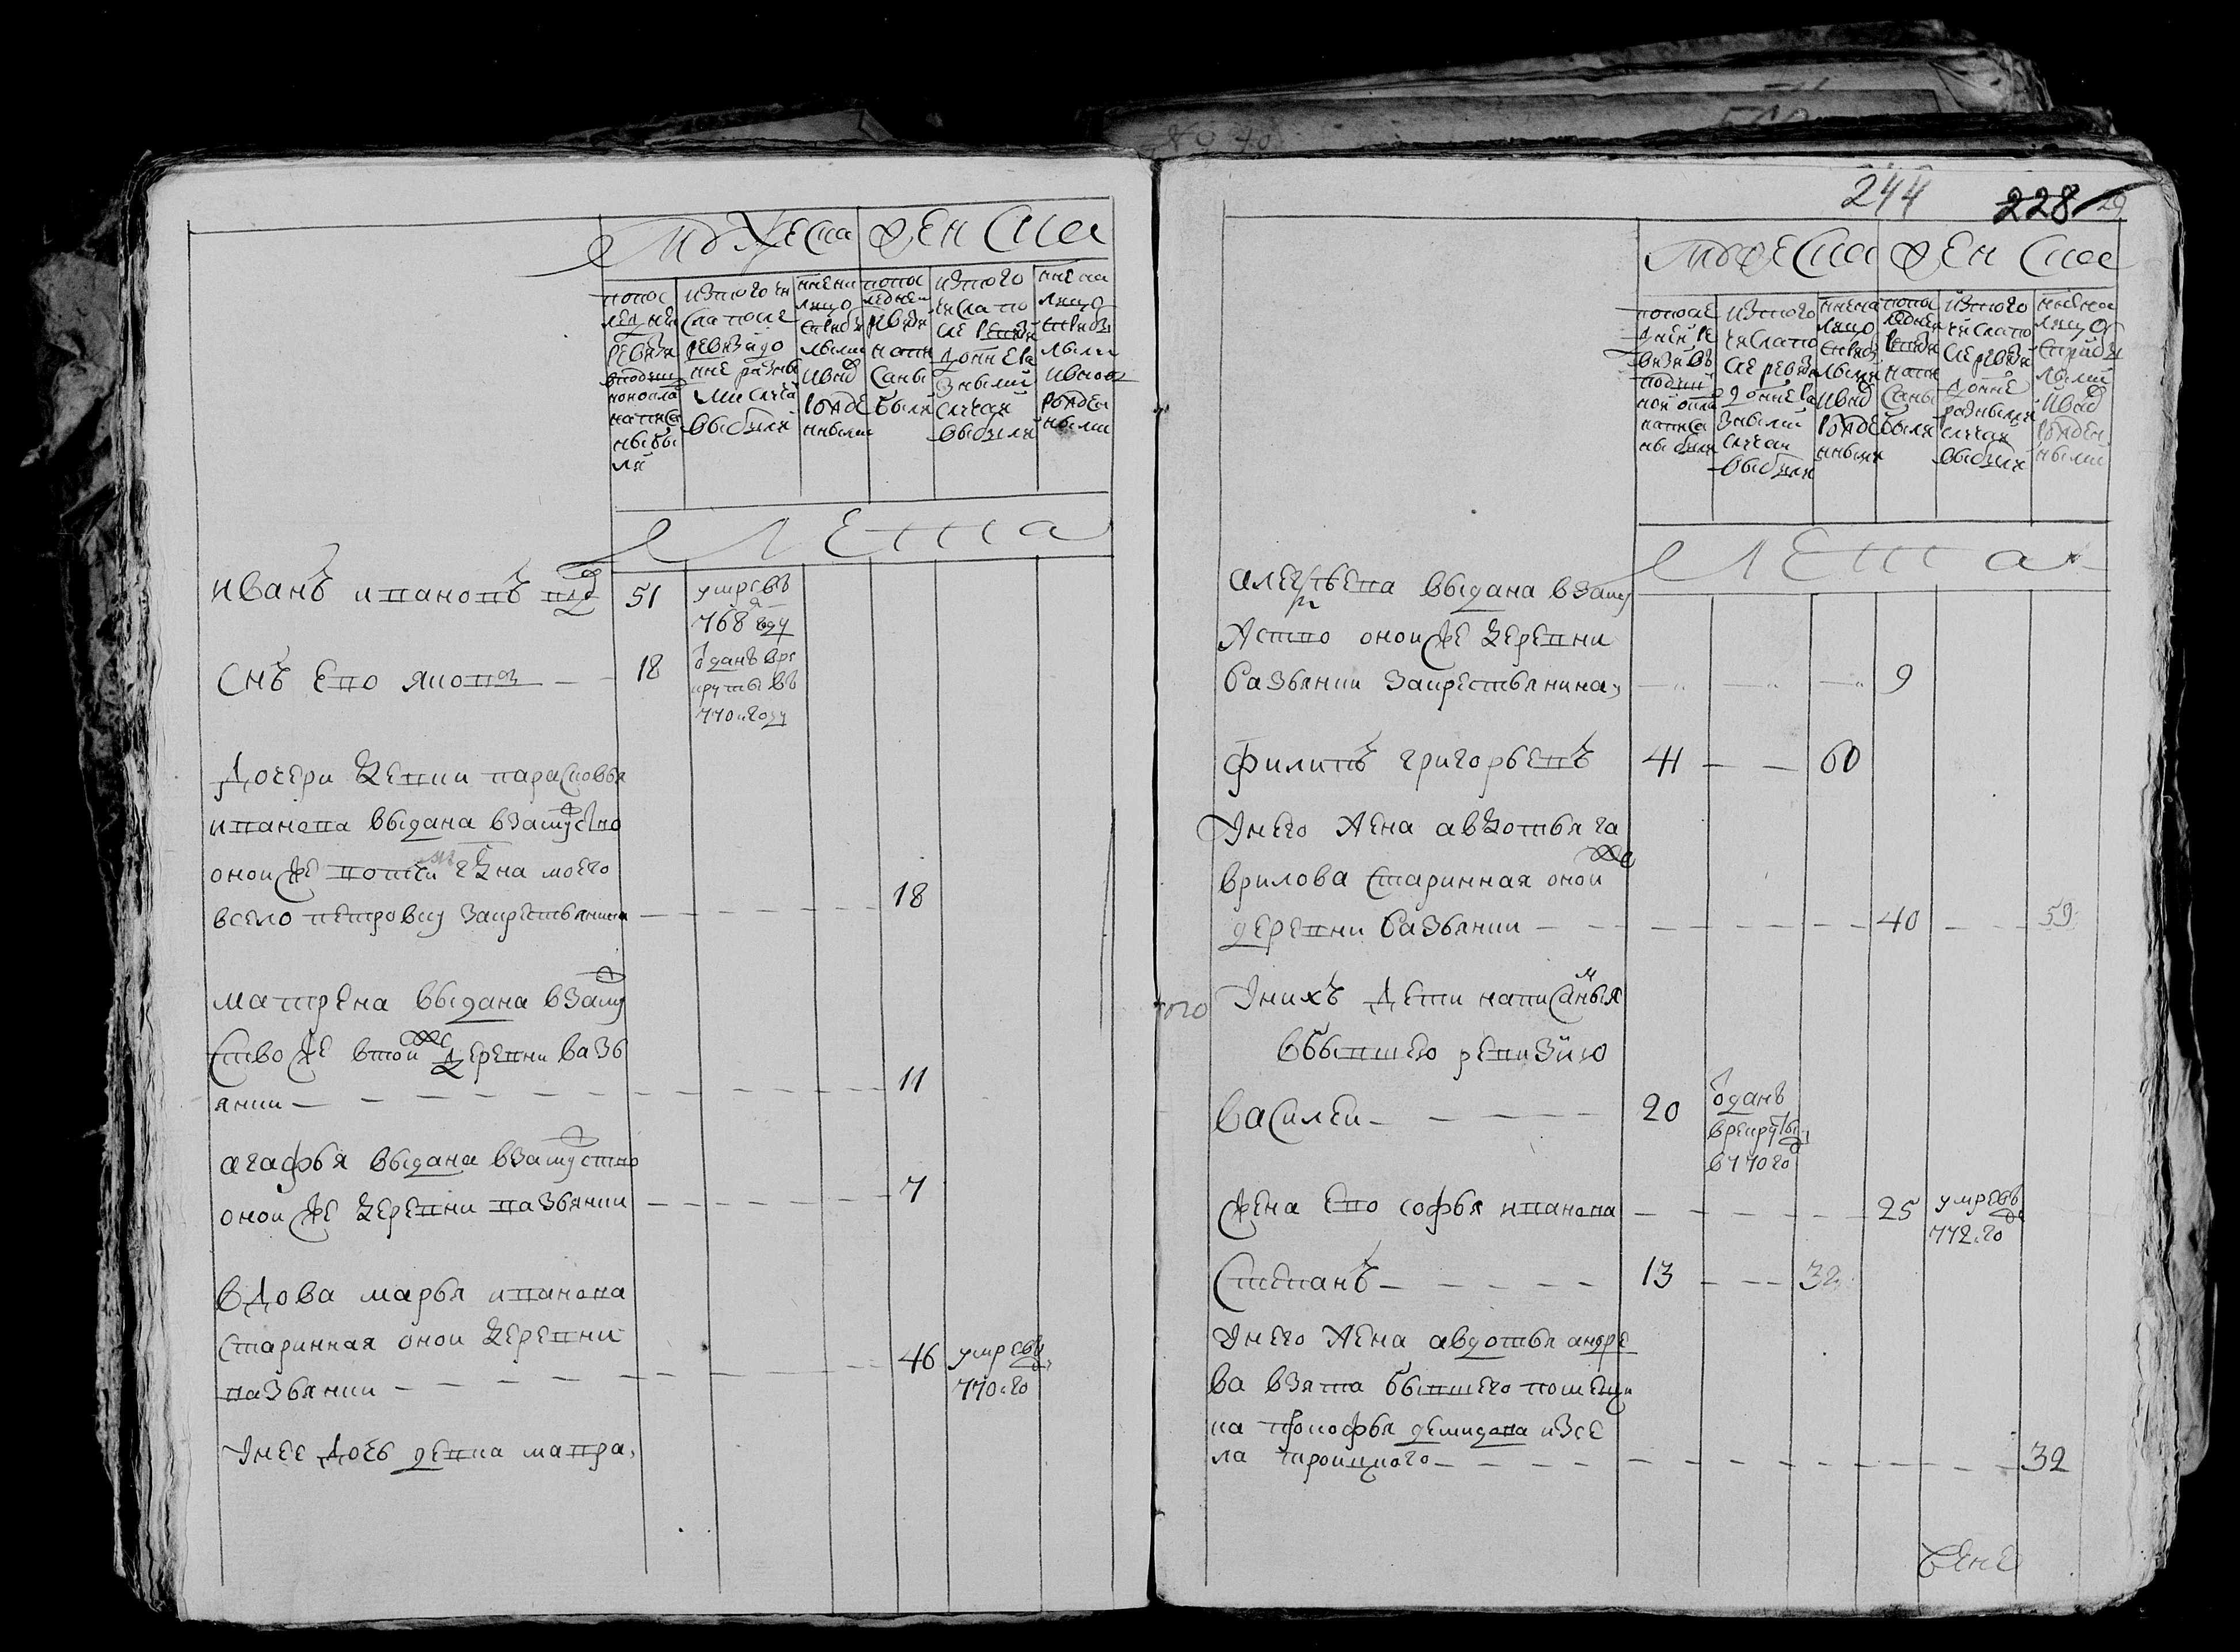 Мужеска Женска
попос
ледней
ревизи
в подуш
ной окла
написа
ны бы
ли
из того чи
сла после
ревизи до
ныне разны
ми случаи
выбыли
ныне на
лицо
с прибы
лыми
и внов
рожде
нными
попос
ледней
ревизи
напи
саны
были
из того
числа по
сле ревизи
до ныне ра
зными
случаи
выбыли
ныне на
лицо
с прибы
лыми
и внов
рожден
ными
Лета
Иванъ ивановъ 51 умре въ
768 году
Снъ ево яковъ 18 отданъ в ре
круты въ
770 году
Дочери девки парасковья
иванова выдана взамуство
оной же
18
в село петровку за крестьянина
матрена выдана взаму
ство же в той же деревни вазь
янки 11
агафья выдана взамуство
оной же деревни вазьянки 7
вдова марья иванова
старинная оной деревни
вазьянки 46 умре въ
770 го
У нее дочь девка мавра
244 228
Мужеска Женска
попосле
дней ре
визи въ
подуш
ной окла
написа
ны были
из того
числа по
сле ревизи
до ныне ра
зными
случаи
выбыли
ныне на
лицо
с прибы
лыми
и внов
рожде
нными
попос
ледней
ревизи
напи
саны
были
из того
числа по
сле ревизи
до ныне
разными
случаи
выбыли
ныне на
лицо
с прибы
лыми
и внов
рожден
ными
Лета
выдана взаму
жство оной же деревни
вазьянки за крестьянина 9
Филипъ григорьевъ 41 60
У него жена авдотья га
врилова старинная оной же
деревни вазьянки 40 59
У нихъ дети написаныя
в бывшею ревизию
василеи 20 отданъ
в рекруты
в 770 го
жена ево софья иванова 25 умре въ
772 го
Степанъ 13 32
У него жена авдотья андре
ва взята бывшего помещи
ка прокофья демидова из се
ла троицкого 32